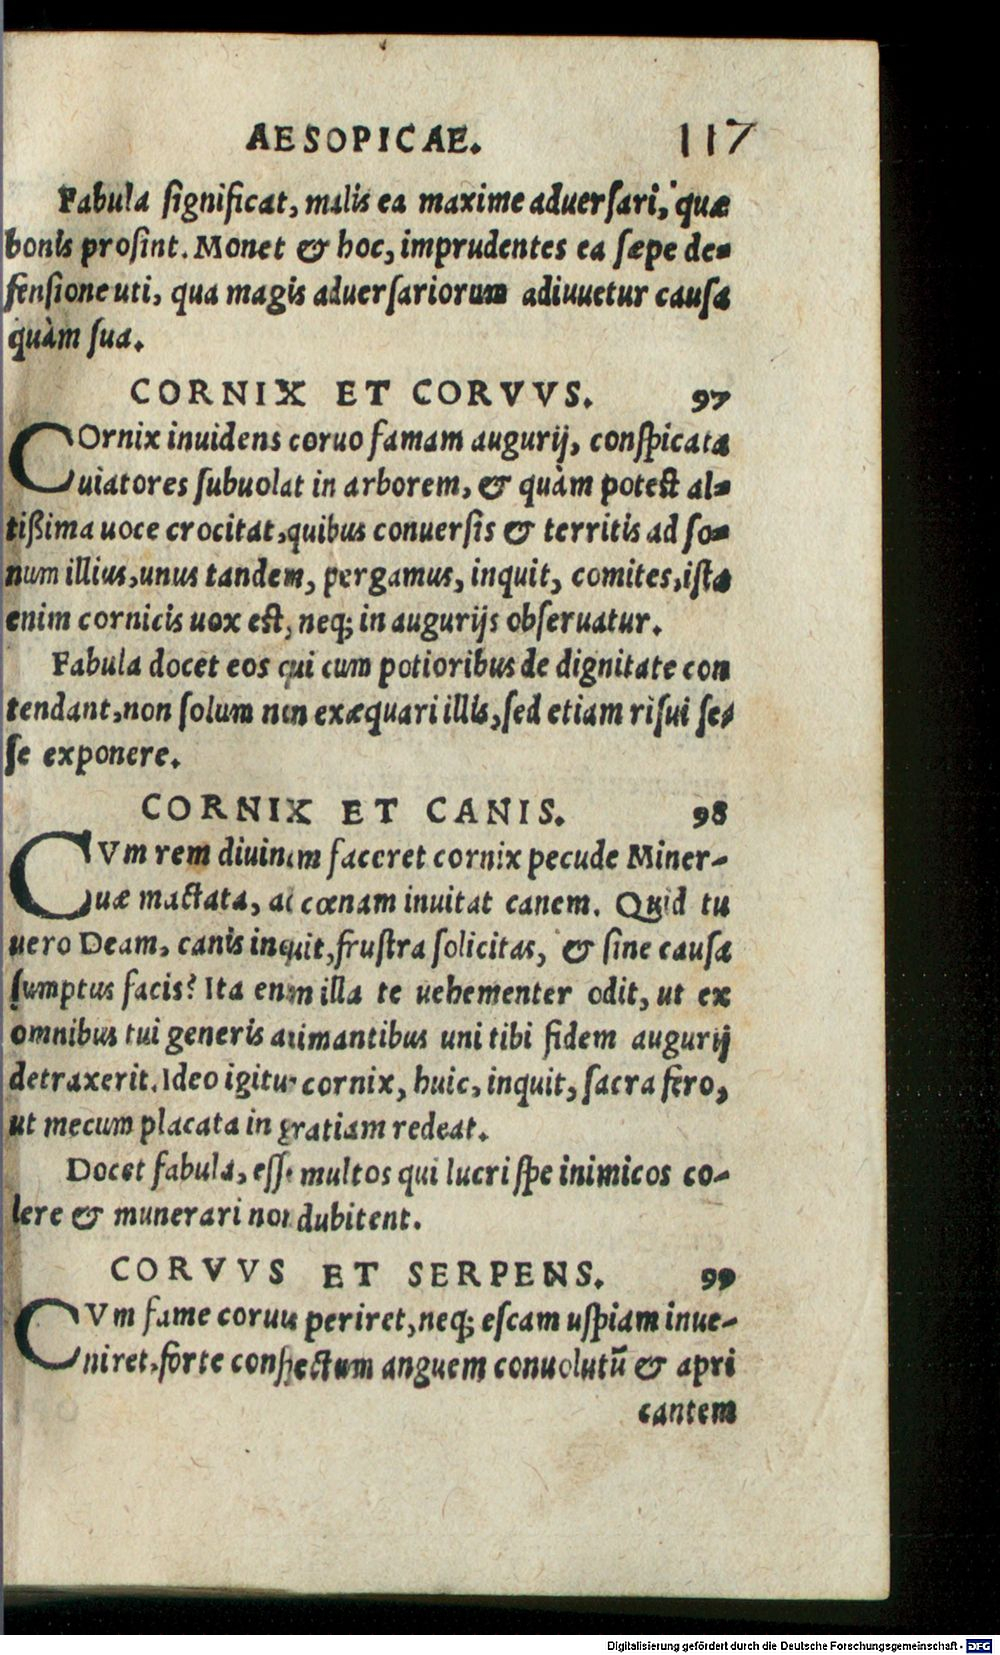 AESOPICAE. 117
Fabula significat, malis ea maxime aduersari, quæ
bonis prosint. Monet & hoc, imprudentes ea sæpe de-
fensione uti, qua magis aduersariorum adiuuetur causa
quàm sua.
CORNIX ET CORVVS. 97
COrnix inuidens coruo famam augurij, conspicata
uiatores subuolat in arborem, & quàm potest al-
tißima uoce crocitat, quibus conuersis & territis ad so-
num illius, unus tandem, pergamus, inquit, comites, ista
enim cornicis uox est, neq; in augurijs obseruatur.
Fabula docet eos qui cum potioribus de dignitate con
tendant, non solum non exæquari illis, sed etiam risui se-
se exponere.
CORNIX ET CANIS. 98
CVm rem diuinam faceret cornix pecude Miner-
uæ mactata, ad cœnam inuitat canem. Quid tu
uero Deam, canis inquit, frustra solicitas, & sine causa
sumptus facis? Ita enim illa te uehementer odit, ut ex
omnibus tui generis animantibus uni tibi fidem augurij
detraxerit. Ideo igitur cornix, huic, inquit, sacra fero,
ut mecum placata in gratiam redeat.
Docet fabula, esse multos qui lucri spe inimicos co-
lere & munerari non dubitent.
CORVVS ET SERPENS. 99
CVm fame coruus periret, neq; escam uspiam inue-
niret, forte conspectum anguem conuolutũ & apri
cantem
Digitalisierung gefördert durch die Deutsche Forschungsgemeinschaft - DFG